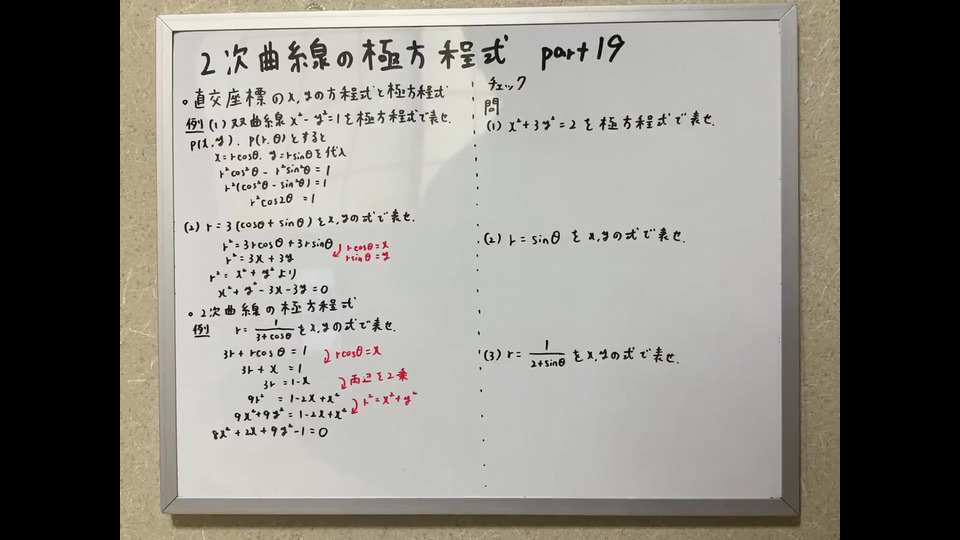 2次曲線の極方程式 part19
○直交座標のx,yの方程式と極方程式
例 (1) 双曲線x²-y²=1を極方程式で表せ.
P(x,y), P(r,θ)とすると
x=rcosθ, y=rsinθを代入
r²cos²θ - r²sin²θ = 1
r²(cos²θ - sin²θ) = 1
r²cos2θ = 1
(2) r = 3(cosθ + sinθ)をx,yの式で表せ.
r² = 3rcosθ + 3rsinθ
r² = 3x + 3y
rcosθ = x
rsinθ = y
r² = x² + y²より
x² + y² - 3x - 3y = 0
○2次曲線の極方程式
例 r = 1/(3+cosθ) をx,yの式で表せ.
3r + rcosθ = 1
rcosθ = x
3r + x = 1
3r = 1-x
両辺を2乗
9r² = 1-2x+x²
r² = x² + y²
9x²+9y² = 1-2x+x²
8x² + 2x + 9y² - 1 = 0
チェック
問
(1) x² + 3y² = 2 を極方程式で表せ.
(2) r = sinθ をx,yの式で表せ.
(3) r = 1/(2+sinθ) をx,yの式で表せ.